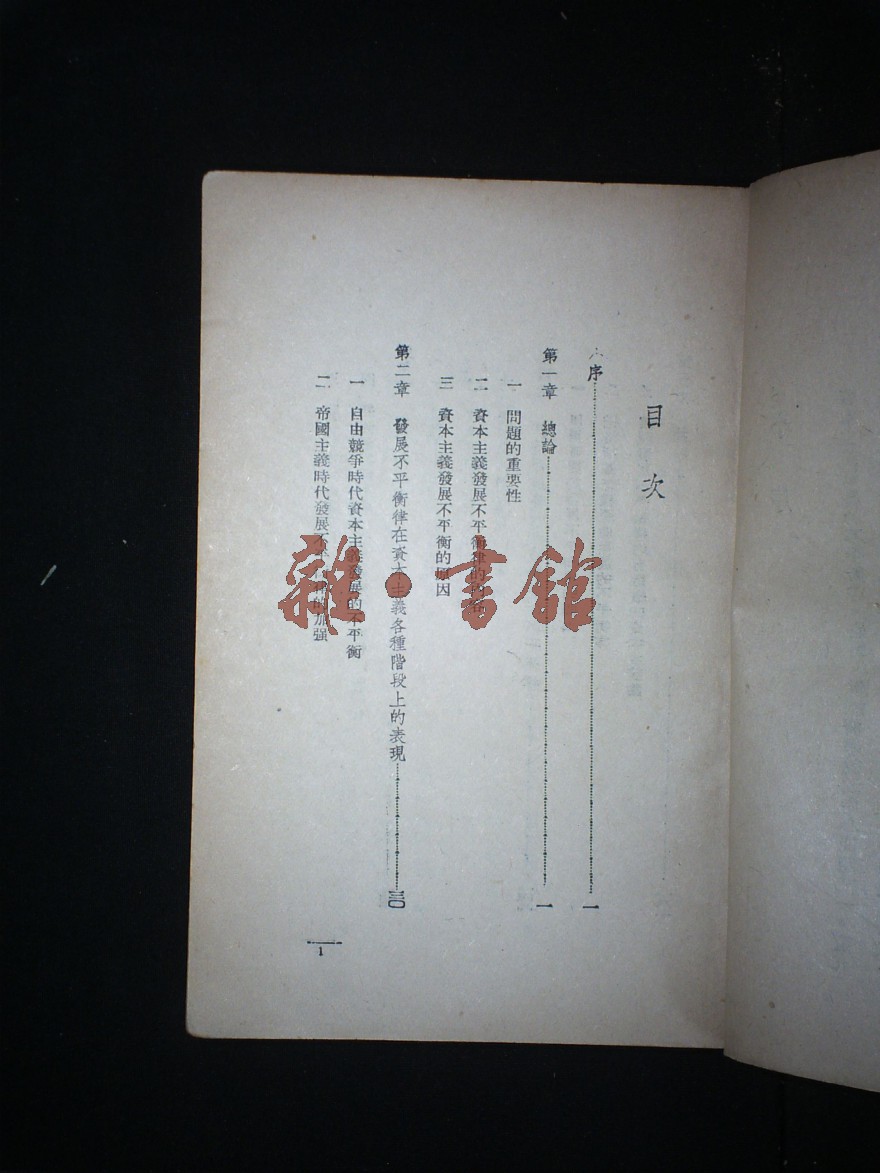 目次
序……一
第一章 總論……一
一 問題的重要性
二 資本主義發展不平衡律的
三 資本主義發展不平衡的原因
第二章 發展不平衡律在資本主義各種階段上的表現……三〇
一 自由競爭時代資本主義發展的不平衡
二 帝國主義時代發展不平 的加强
1
雜·書館